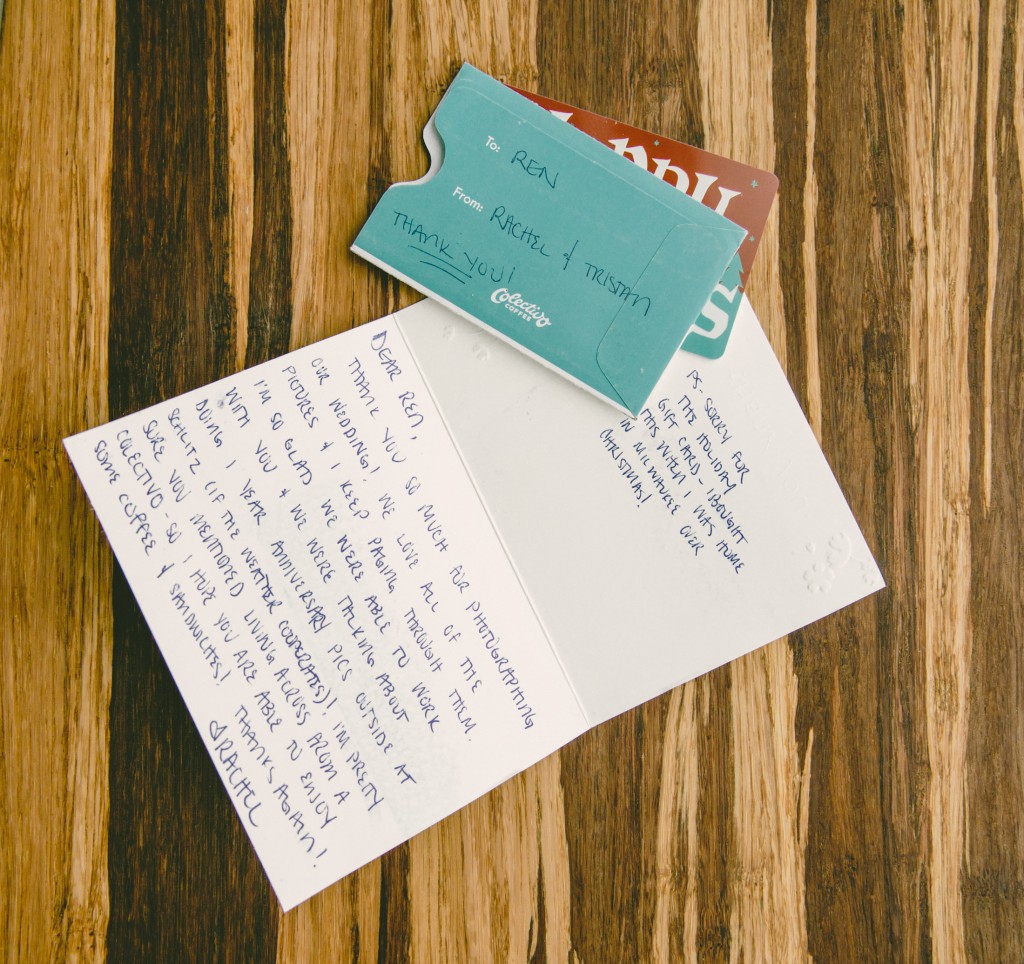 To: REN
From: RACHEL & TRISTAN
THANK YOU!
Colectivo
COFFEE
DEAR REN,
THANK YOU SO MUCH FOR PHOTOGRAPHING
OUR WEDDING! WE LOVE ALL OF THE
PICTURES & I KEEP PAGING THROUGH THEM.
I'M SO GLAD WE WERE ABLE TO WORK
WITH YOU & WE WERE TALKING ABOUT
DOING 1 YEAR ANNIVERSARY PICS OUTSIDE AT
SCHLITZ (IF THE WEATHER COOPERATES)! I'M PRETTY
SURE YOU MENTIONED LIVING ACROSS FROM A
COLECTIVO - SO I HOPE YOU ARE ABLE TO ENJOY
SOME COFFEE & SANDWICHES! THANKS AGAIN!
RACHEL
PS. SORRY FOR
THE HOLIDAY
GIFT CARD - I BOUGHT
THIS WHEN I WAS HOME
IN MILWAUKEE OVER
CHRISTMAS!